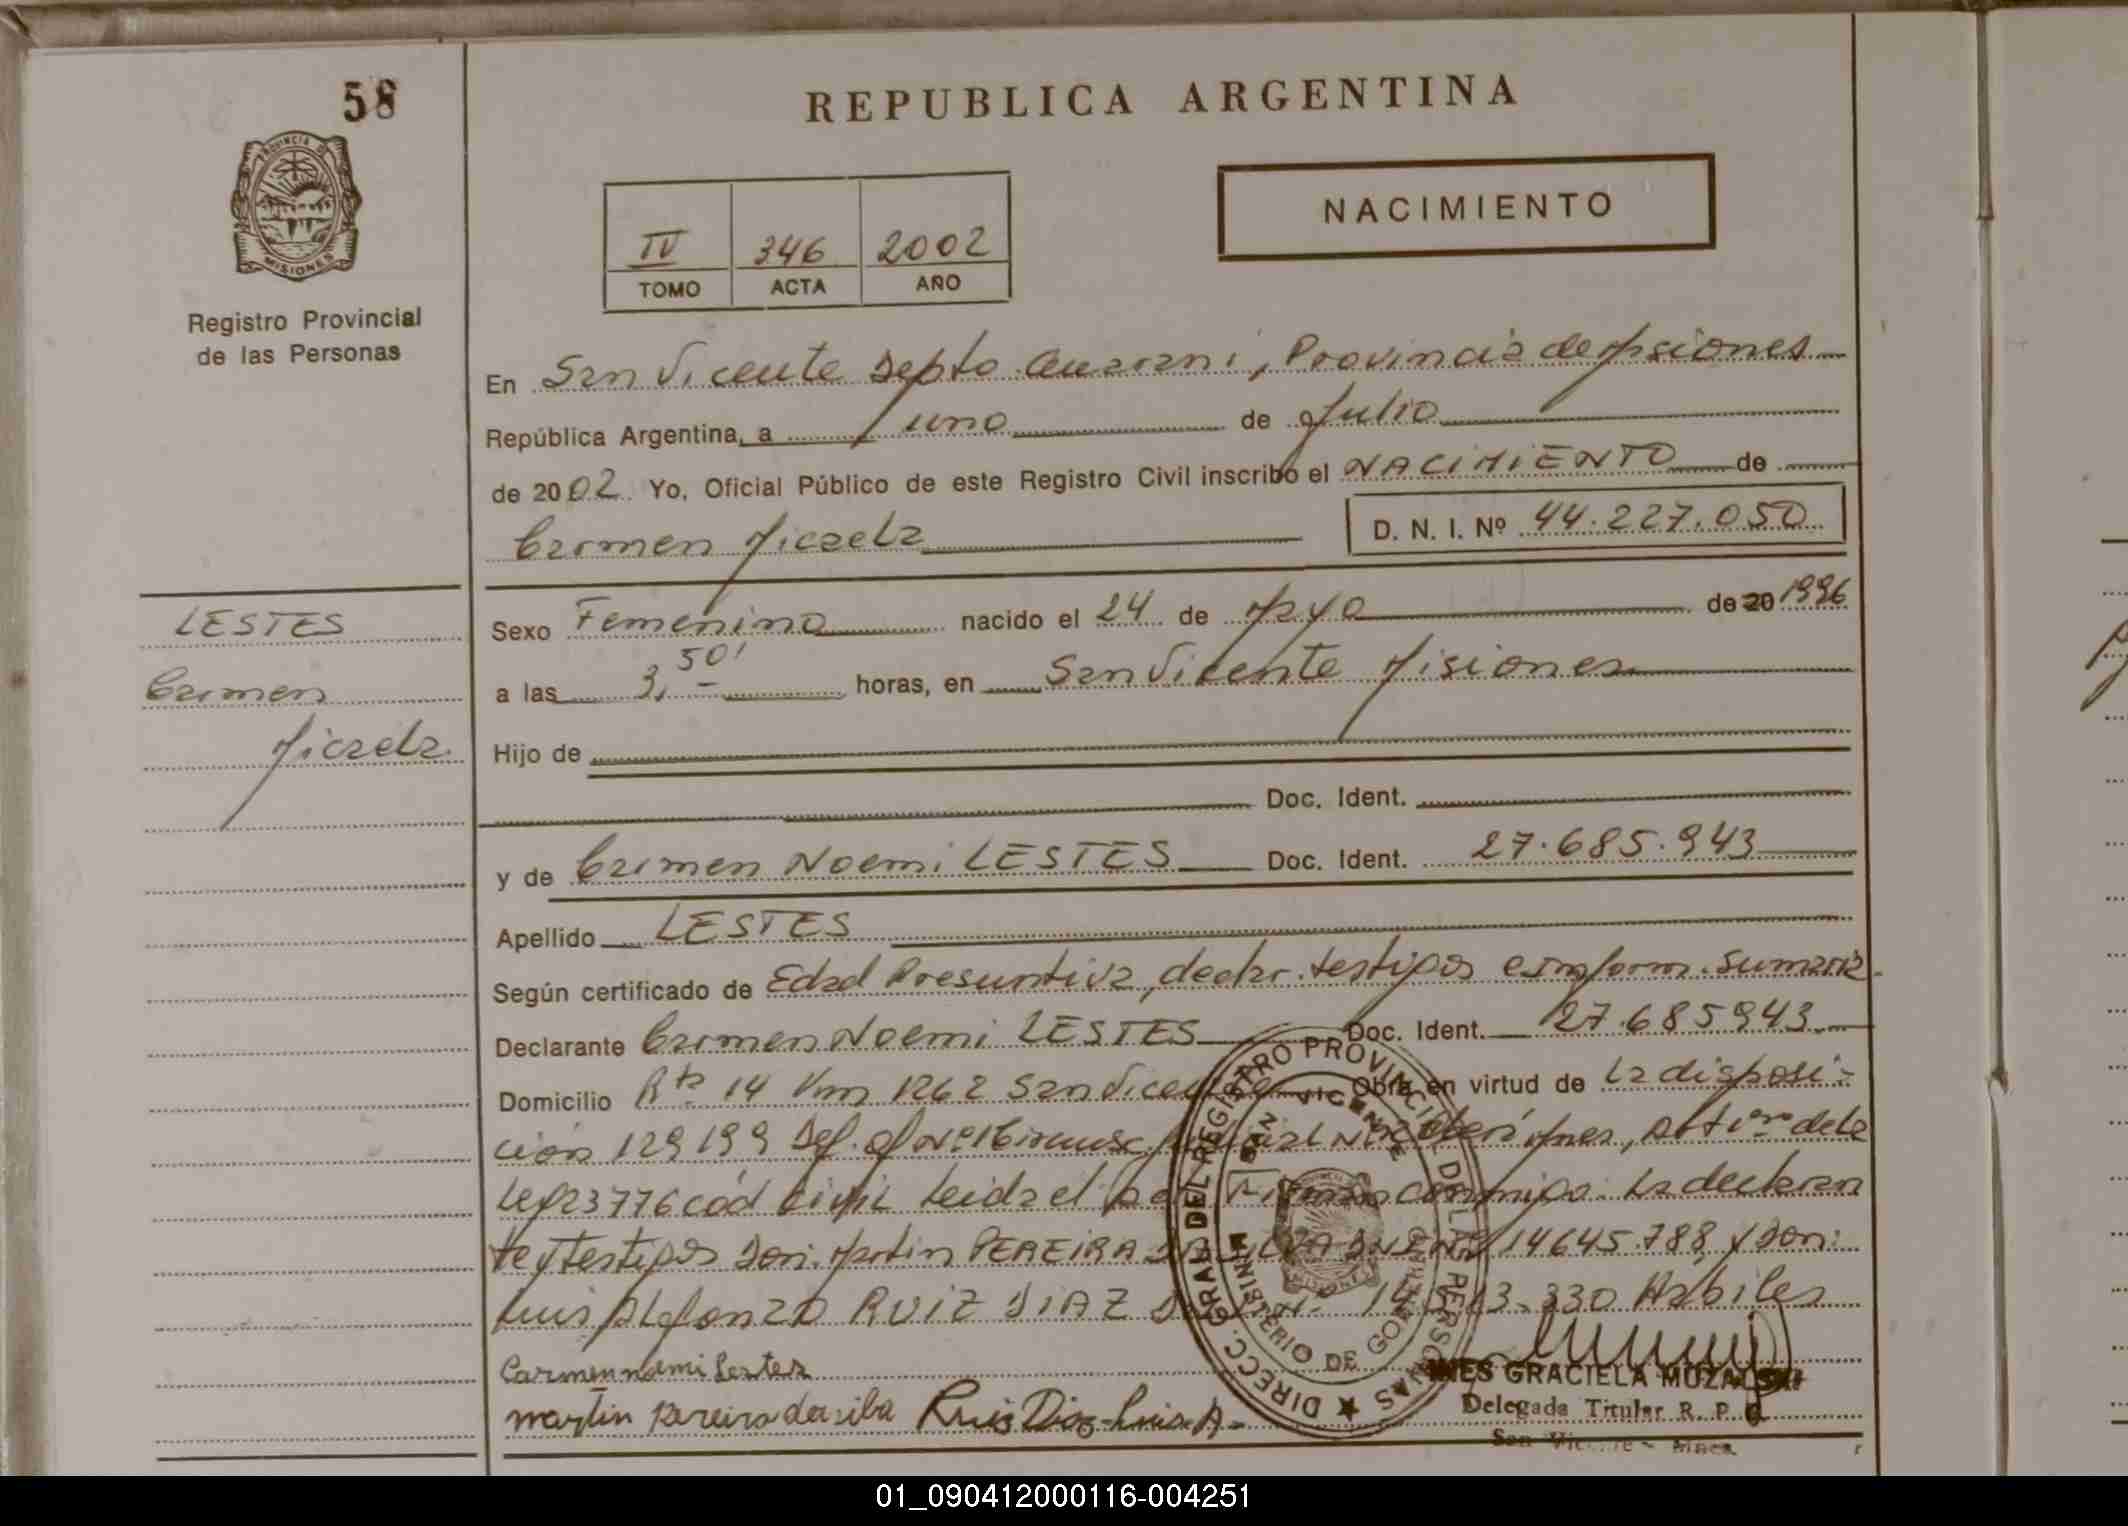 58
REPUBLICA ARGENTINA
PROVINCIA DE
MISIONES
Registro Provincial
de las Personas
IV 346 2002
TOMO ACTA AÑO
NACIMIENTO
En San Vicente Depto Guarani, Provincia de Misiones
República Argentina, a uno de Julio
de 2002 Yo, Oficial Público de este Registro Civil inscribo el NACIMIENTO de
Carmen Micaela D. N. I. Nº 44.227.050
LESTES
Carmen
Micaela
Sexo Femenino nacido el 24 de Mayo de 20 1996
a las 3,50' horas, en San Vicente Misiones
Hijo de
Doc. Ident.
y de Carmen Noemi LESTES Doc. Ident. 27.685.943
Apellido LESTES
Según certificado de Edad Presuntiva, declar. testigos e inform. Sumaria
Declarante Carmen Noemi LESTES Doc. Ident. 27.685943
Domicilio Rta 14 Km 1262 San Vicente Obra en virtud de La disposi-
ción 129199 Def. de la
Ley 23776 cód civil Leida el conmigo La declaran
te y testigos Don: Martin PEREIRA DA SILVA DNI Nº 14645.788 y Don:
Luis Alfonzo RUIZ DIAZ 330 Habiles
Carmen noemi Lestes
martin pereira da silba Ruiz Diaz Luis A
DIRECC. GRAL DEL REGISTRO PROVINCIAL DE LAS PERSONAS
SAN VICENTE
MINISTERIO DE GOBIERNO
MISIONES
INES GRACIELA MUZALSKI
Delegada Titular R. P.
San Vicente - Mnes.
01_090412000116-004251